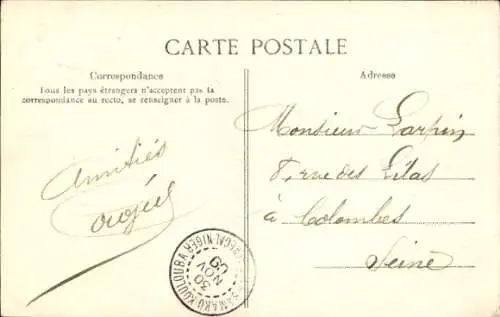 CARTE POSTALE
Correspondance
Tous les pays étrangers n'acceptent pas la
correspondance au recto, se renseigner à la poste.
Adresse
Amitiés
Monsieur Larpin
8, rue des Lilas
à Colombes
Seine
BAMAKO-KOULOUBA
SENEGAL NIGER
30
NOV
09